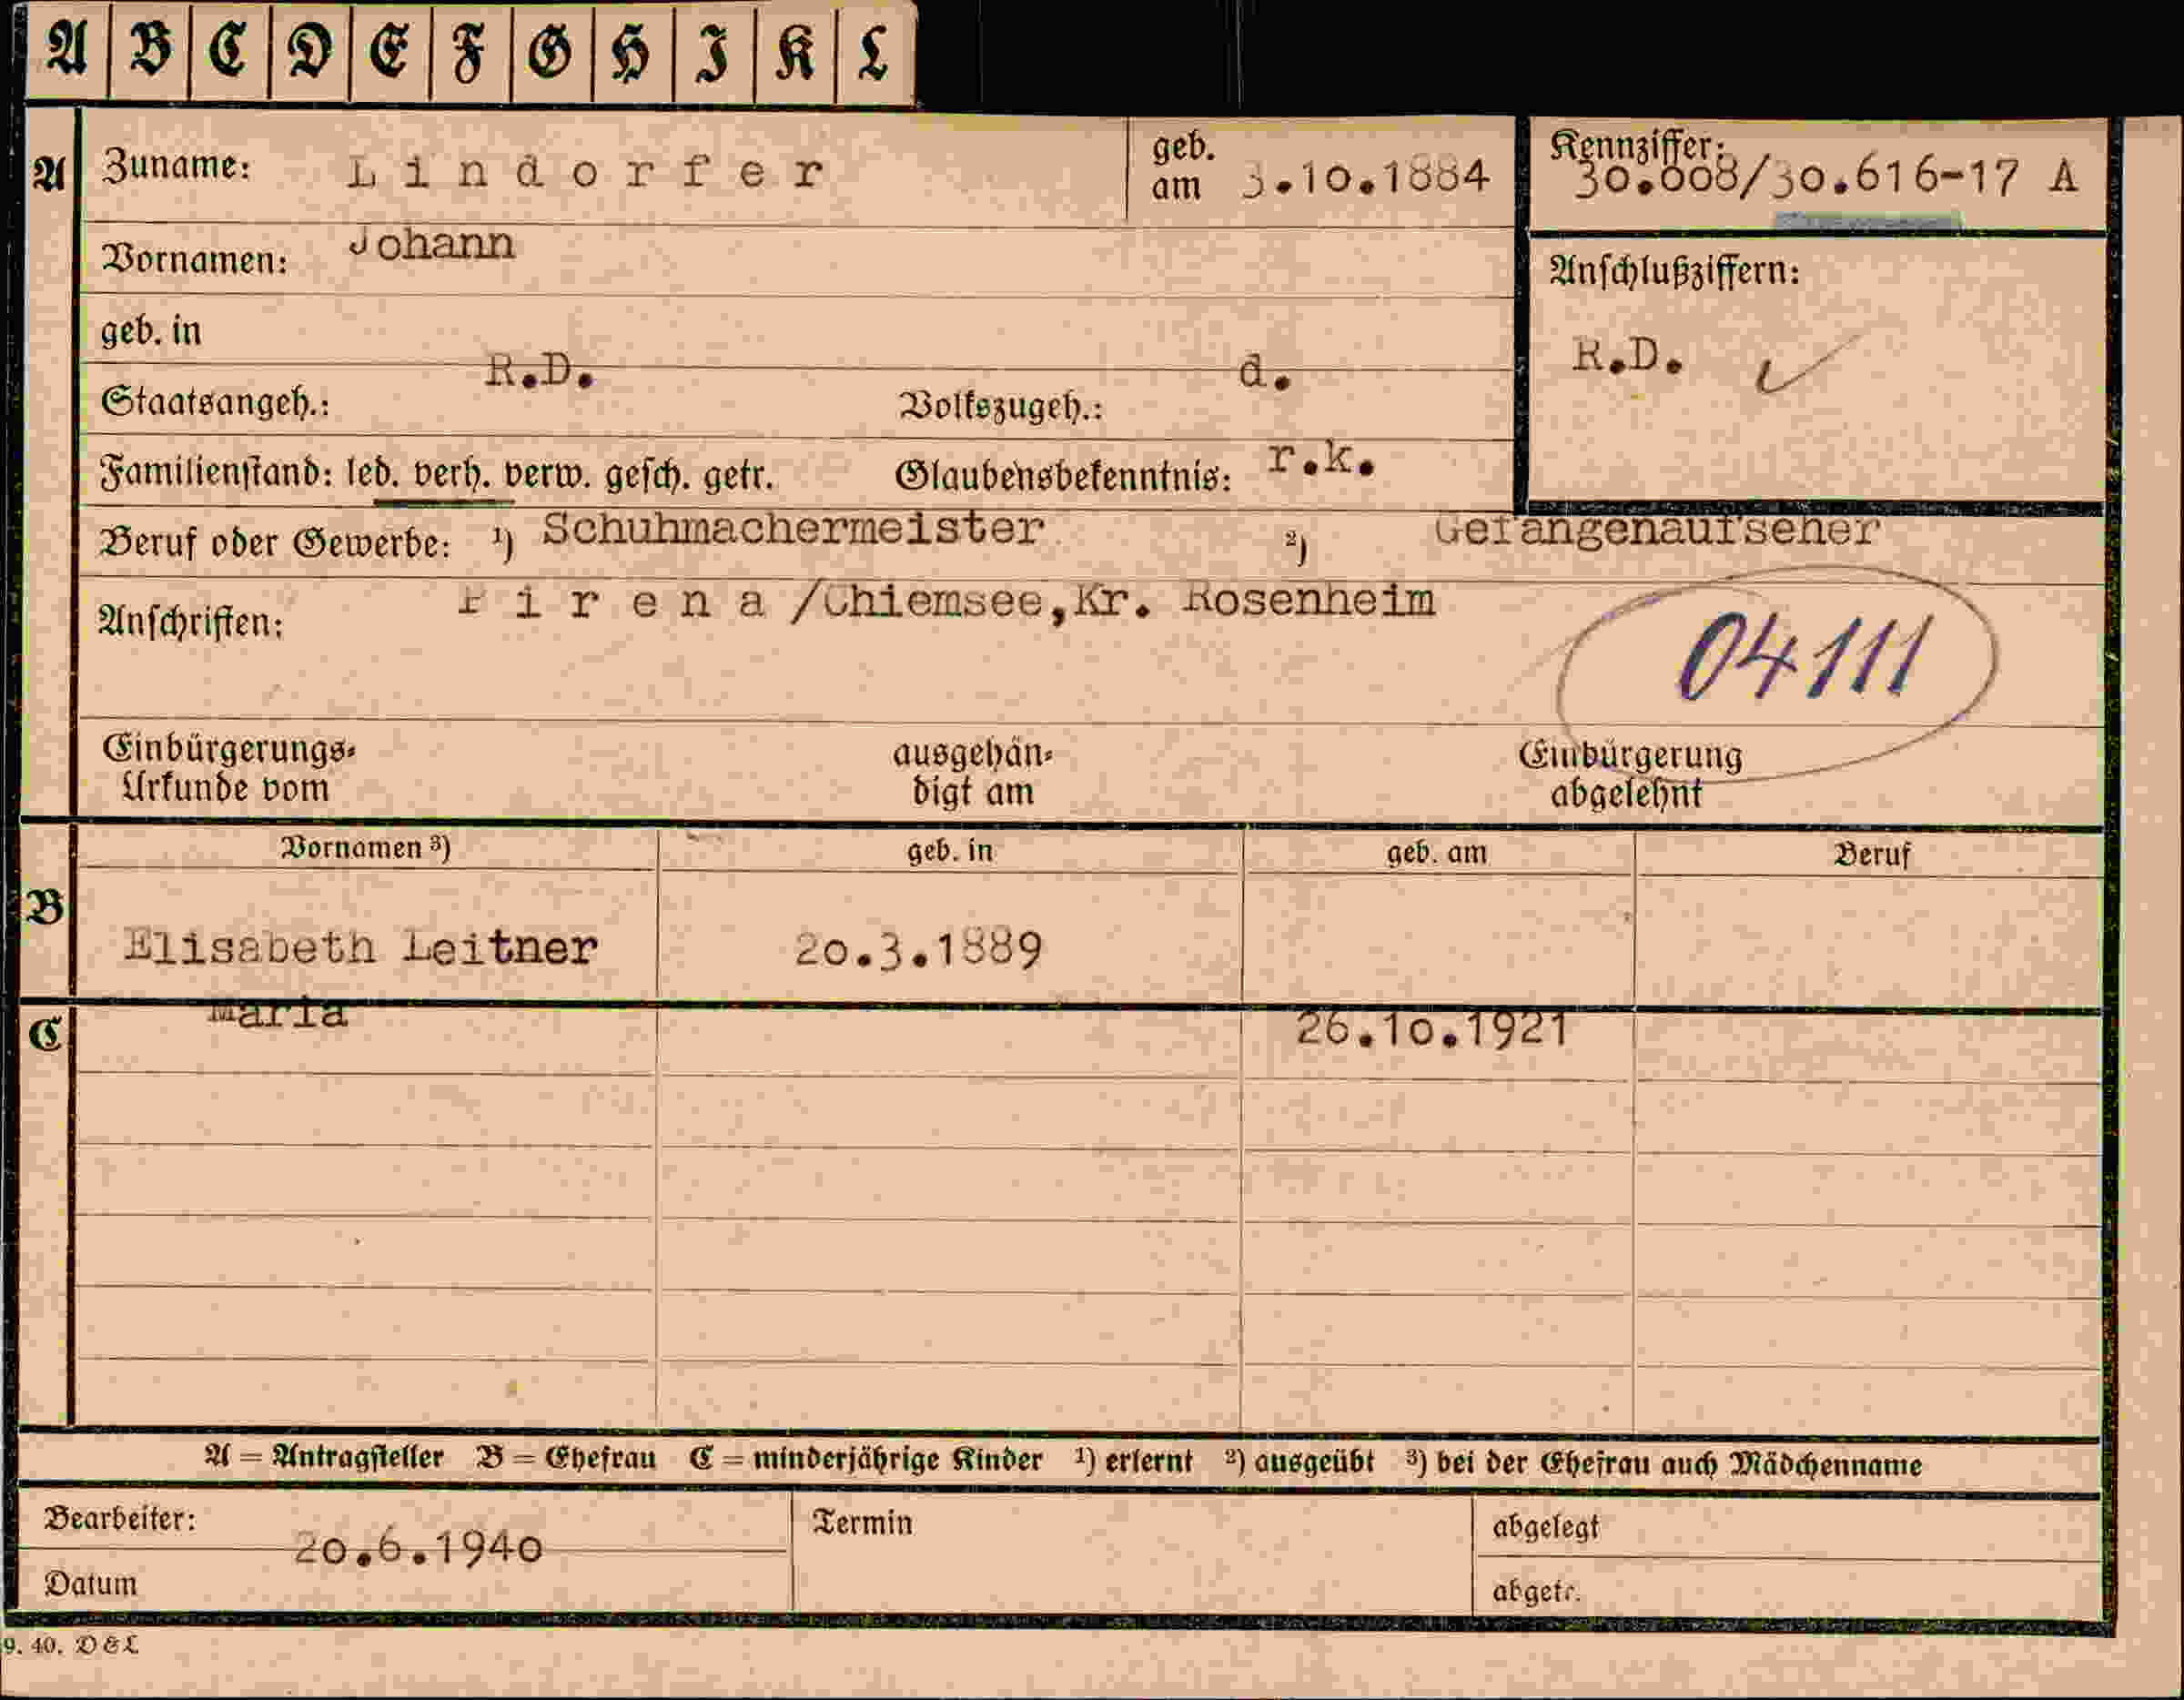 A B C D E F G H I K L
A Zuname: Lindorfer geb. am 3.10.1884 Kennziffer: 30.608/30.616-17 A
Vornamen: Johann Anschlußziffern:
geb. in
R.D. d. R.D. ✓
Staatsangeh.: Volkszugeh.:
Familienstand: led. verh. verw. gesch. getr. Glaubensbekenntnis: r.k.
Beruf oder Gewerbe: ¹) Schuhmachermeister ²) Gefangenaufseher
Anschriften: /Chiemsee,Kr. Rosenheim
04111
Einbürgerungs- ausgehän- Einbürgerung
Urkunde vom digt am abgelehnt
Vornamen ³) geb. in geb. am Beruf
B Elisabeth Leitner 20.3.1889
C Maria 26.10.1921
A = Antragsteller B = Ehefrau C = minderjährige Kinder ¹) erlernt ²) ausgeübt ³) bei der Ehefrau auch Mädchenname
Bearbeiter: Termin abgelegt
20.6.1940
Datum abgetr.
9. 40. D&L